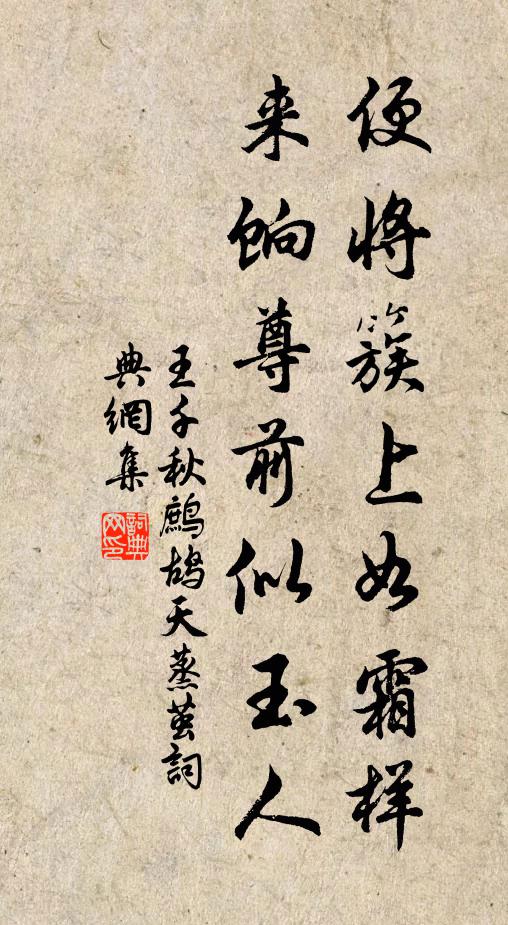 便将簇上如霜样
来饷尊前似玉人
王千秋鹧鸪天蒸茧詞
典網集
詞典網印